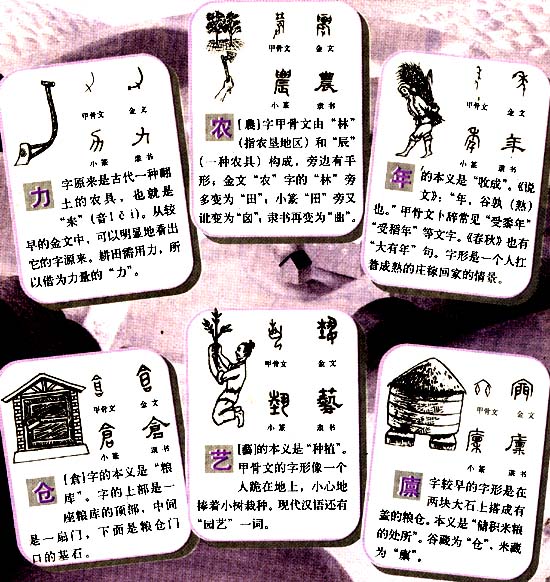 甲骨文 金文
小篆 隶书
力 字原来是古代一种翻
土的农具，也就是
“耒”（音lěi）。从较
早的金文中，可以明显地看出
它的字源来。耕田需用力，所
以借为力量的“力”。
甲骨文 金文
小篆 隶书
农 [農]字甲骨文由“林”
（指农垦地区）和“辰”
（一种农具）构成，旁边有平
形；金文“农”字的“林”旁
多变为“田”；小篆“田”旁又
讹变为“囟”；隶书再变为“曲”。
甲骨文 金文
小篆 隶书
年 的本义是“收成”。《说
文》：“年，谷孰（熟）
也。”甲骨文卜辞常见“受黍年”
“受稻年”等文字。《春秋》也有
“大有年”句。字形是一个人扛
着成熟的庄稼回家的情景。
甲骨文 金文
小篆 隶书
仓 [倉]字的本义是“粮
库”。字的上部是一
座粮库的顶部，中间
是一扇门，下面是粮仓门
口的基石。
甲骨文 金文
小篆 隶书
艺 [藝]的本义是“种植”。
甲骨文的字形像一个
人跪在地上，小心地
捧着小树栽种。现代汉语还有
“园艺”一词。
甲骨文 金文
小篆 隶书
廪 字较早的字形是在
两块大石上搭成有
盖的粮仓。本义是“储积米粮
的处所”。谷藏为“仓”，米藏
为“廪”。